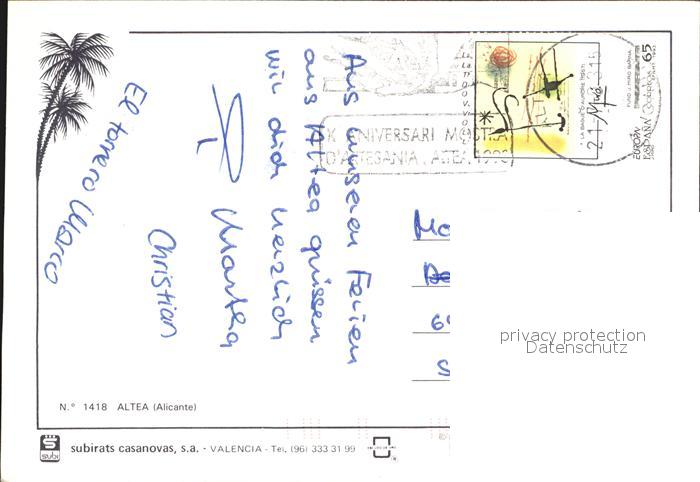 Aus unseren Ferien
aus Altea grüssen
wir dich herzlich
Martha
Christian
El torrero Marco
X ANIVERSARI MOSTRA
D'ARTESANIA, ALTEA, 1993
EUROPA
ESPAÑA CORREOS 65
privacy protection
Datenschutz
N.° 1418 ALTEA (Alicante)
subi
subirats casanovas, s.a. - VALENCIA - Tel. (96) 333 31 99